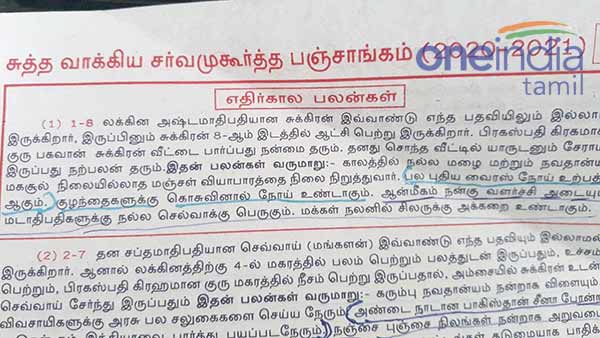 சுத்த வாக்கிய சர்வமுகூர்த்த பஞ்சாங்கம் (2020-2021)
oneindia
tamil
எதிர்கால பலன்கள்
(1) 1-8 லக்கின அஷ்டமாதிபதியான சுக்கிரன் இவ்வாண்டு எந்த பதவியிலும் இல்லா
இருக்கிறார், இருப்பினும் சுக்கிரன் 8-ஆம் இடத்தில் ஆட்சி பெற்று இருக்கிறார். பிரகஸ்பதி கிரகமாக
குரு பகவான் சுக்கிரன் வீட்டை பார்ப்பது நன்மை தரும். தனது சொந்த வீட்டில் யாருடனும் சேரா
இருப்பது நற்பலன் தரும். இதன் பலன்கள் வருமாறு:- காலத்தில் நல்ல மழை மற்றும் நவதான்ய
மகசூல் நிலையில்லாத மஞ்சள் வியாபாரத்தை நிலை நிறுத்துவார். பல புதிய வைரஸ் நோய் உற்பத்தி
ஆகும். குழந்தைகளுக்கு கொசுவினால் நோய் உண்டாகும். ஆன்மீகம் நன்கு வளர்ச்சி அடையு
மடாதிபதிகளுக்கு நல்ல செல்வாக்கு பெருகும். மக்கள் நலனில் சிலருக்கு அக்கறை உண்டாகும்.
(2) 2-7 தன சப்தமாதிபதியான செவ்வாய் (மங்களன்) இவ்வாண்டு எந்த பதவியும் இல்லாமல்
இருக்கிறார். ஆனால் லக்கினத்திற்கு 4-ல் மகரத்தில் பலம் பெற்றும் பலத்துடன் இருப்பதும், உச்சம்
பெற்றும், பிரகஸ்பதி கிரஹமான குரு மகரத்தில் நீசம் பெற்று இருப்பதால், அம்சையில் சுக்கிரன் உடன்
செவ்வாய் சேர்ந்து இருப்பதும் இதன் பலன்கள் வருமாறு:- கரும்பு நவதான்யம் நன்றாக விளையும்.
விவசாயிகளுக்கு அரசு பல சலுகைகளை செய்ய நேரும். அண்டை நாடான பாகிஸ்தான் சீனா போன்ற
இந்தியாவை பார்த்து பயப்படநேரும். நஞ்சை புஞ்சை நிலங்கள் நன்றாக அறுவடை